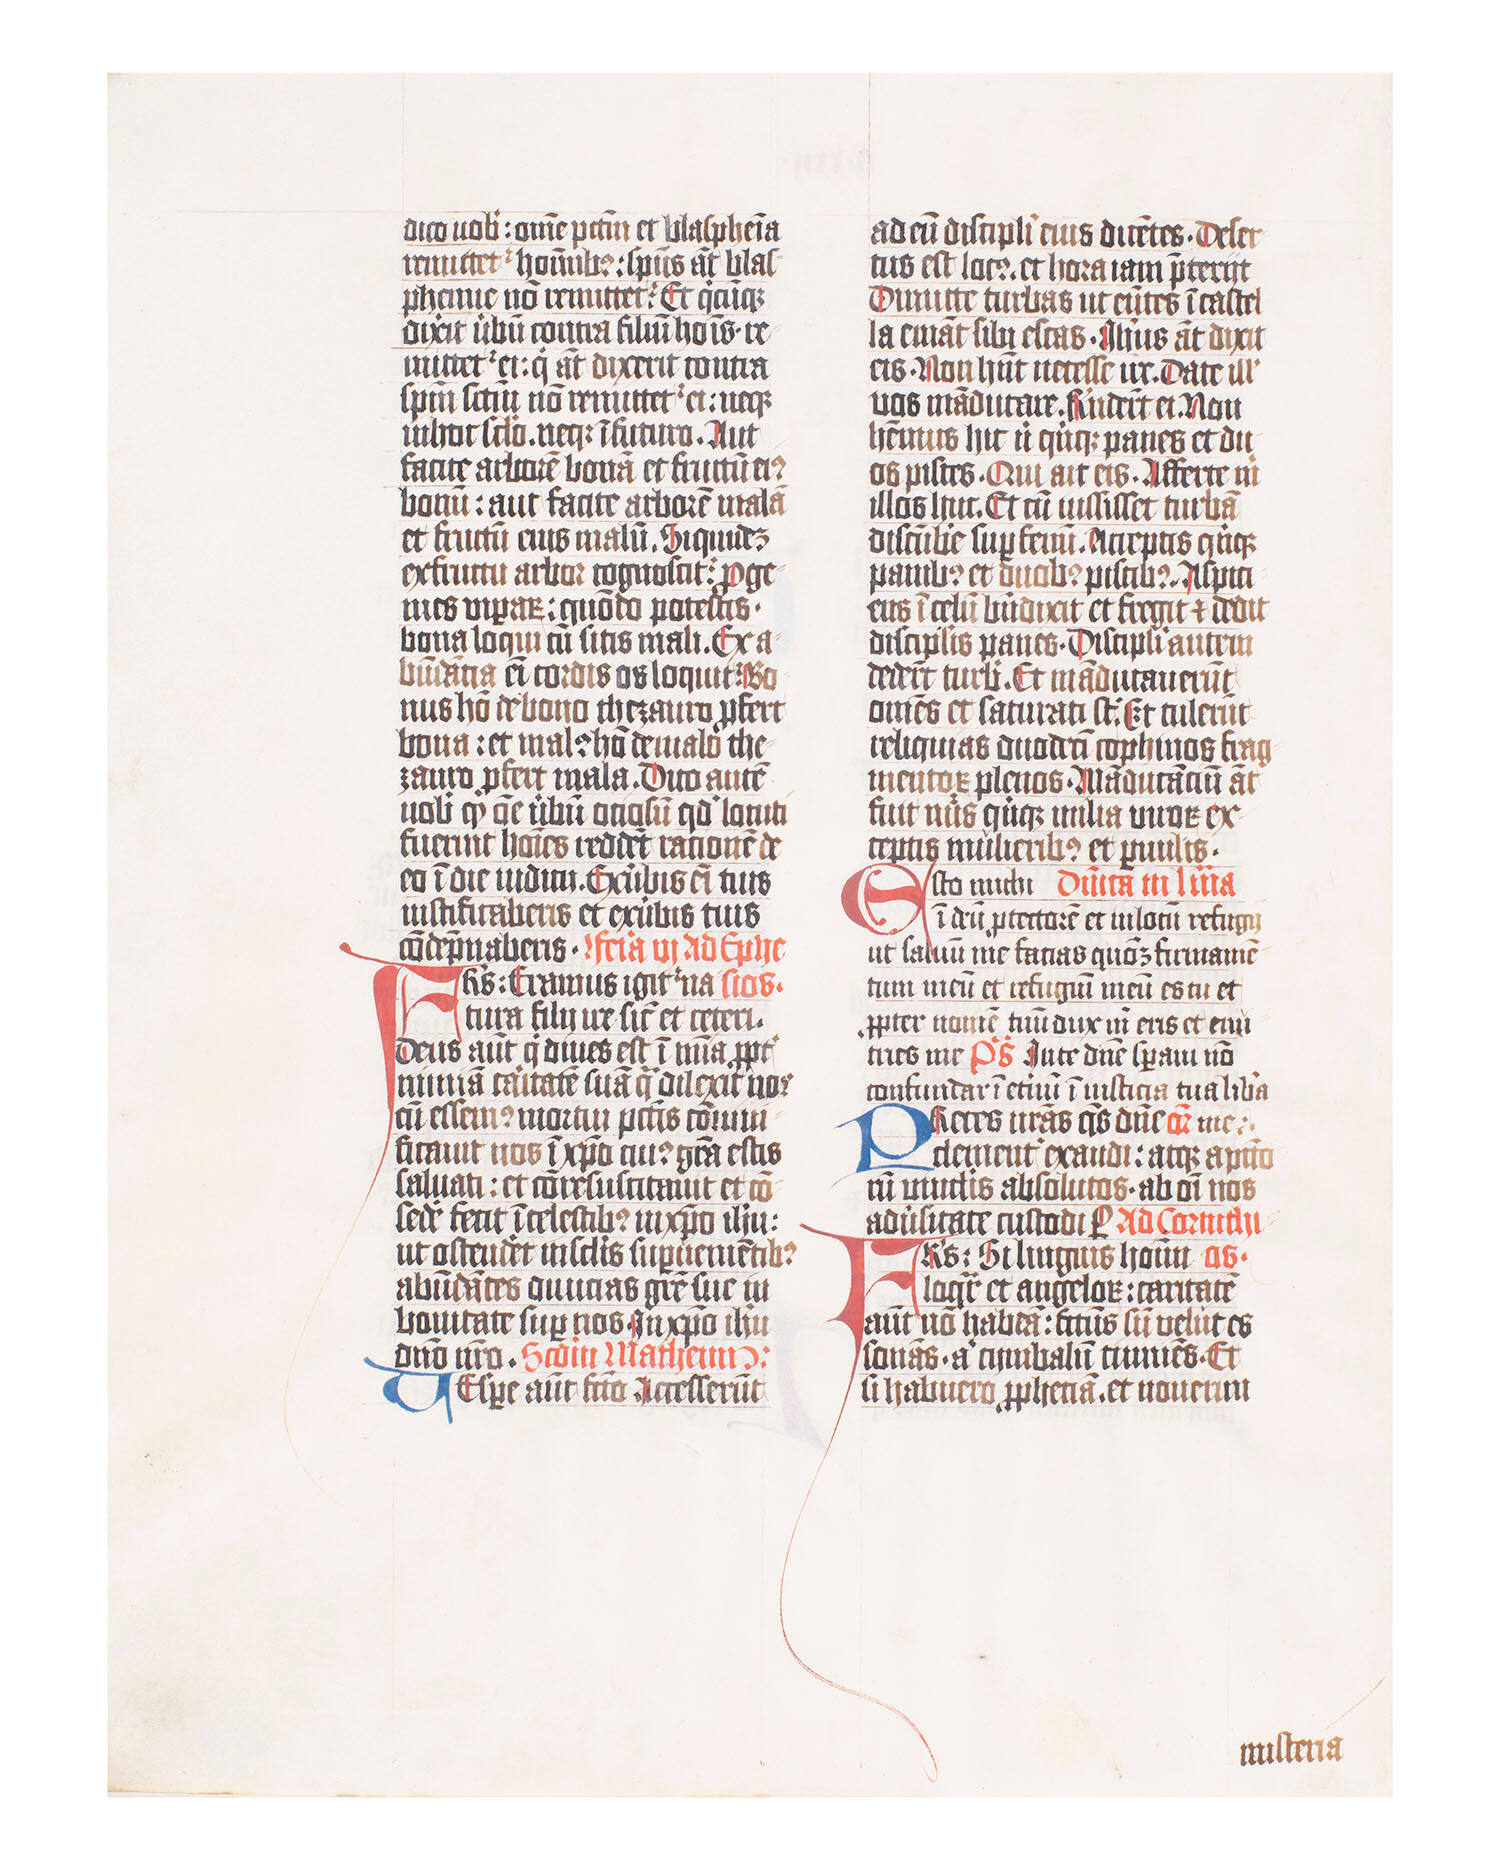 dico uob̄ : om̄e pctm̄ et blasphēīa
remittet᷑ hom̄ib⁹ : sp̄us āt blas
phemie nō remittet᷑ Et q̇cūq₃
dixit ūbū contra filiū hoīs · re
mittet᷑ ei : q̇ āt dixerit contra
sp̄m sctm̄ nō remittet᷑ ei : neq₃
in hoc sclo . neq₃ ī futuro . Aut
facite arborē bonā et fructū ei⁹
bonū : aut facite arborē malā
et fructū eius malū . Siquidē
ex fructu arbor cognoscit᷑ Pge
nies viꝑaꝝ : quōdo potestis ·
bona loqui cū sitis mali . Ex a
būdātia eī cordis os loquit᷑ Bo
nus hō de bono thezauro ꝓfert
bona : et mal⁹ hō de malo the
zauro ꝓfert mala . Dico autē
uob̄ qꝫ om̄e ūbū ociosū qd̄ locuti
fuerint hoīes reddēt rationē de
eo ī die iudicij . Ex ūbis eī tuis
iustificaberis et ex ūbis tuis
cōdēpnaberis · feria vj Ad Ephe
Frs̄ : Eramus igit᷑ na sios ·
tura filij ire sic̄ et ceteri .
Deus aūt q̇ diues est ī mīa ꝓpt᷑
nimiā caritatē suā q̄ dilexit nos
cū essem⁹ mortui pctis cōuiui
ficauit nos ī xp̄o cui⁹ gr̄a estis
saluati : et cōresuscitauit et cō
sedē fecit ī celestib⁹ in xp̄o ihū :
ut ostendēt in sclis suꝑuenientib⁹
abūdātes diuicias grē sue in
bonitate suꝑ nos · In xp̄o ihū
dn̄o nr̄o . Scdm Matheum :
Uespe aūt fcō Accesserūt
ad eū discipli eius dicētes · Deser
tus est loc⁹ . et hora iam p̄terijt
Dimitte turbas ut eūtes ī castel
la emāt sibi escas · Ihūs āt dixit
eis · Non hn̄t necesse ire . Date ill᷑
vos māducare . Rn̄dert̄ ei . Non
hēmus hic n̄ q̇q₃ panes et du
os pisces · Qui ait eis · Afferte m̄
illos huc . Et cū iussisset turbā
discūbē suꝑ fenū . Acceptis q̇q₃
panib⁹ et duob⁹ piscib⁹ . Aspici
ens ī celū bn̄dixit et fregit ⁊ dedit
disciplis panes · Discipli autem
dedert̄ turb̄ . Et māducauerūt
omēs et saturati st̄ . Et tulerūt
reliquias duodeci cophinos frag
mentoꝝ plenos · Māducātiū āt
fuit nūs q̇q₃ milia viroꝝ ex
ceptis mulierib⁹ et ꝑuulis ·
Esto michi Dn̄ica in lma
ī deū ꝓtectorē et in locū refugij
ut saluū me facias quō₃ firmamē
tum meū et refugiū meū es tu et
ꝓpter nomē tuū dux m̄ eris et enu
tries me Ps̄ In te dn̄e spaui nō
confundar ī etnū ī iusticia tua liba
Preces nr̄as qs̄ dn̄e cl᷑ me
clement᷑ exaudi : atq₃ a pcto
rū vinclis absolutos · ab oī nos
adūsitate custodi ꝑ Ad Corinthi
Frs̄ : Si linguis homī os ·
loqr̄ et angeloꝝ : caritatē
aūt nō habeā : fctus sū velut es
sonās · a᷑ cymbalū tinniēs · Et
si habuero ꝓphetiā . et nouerim
misteria